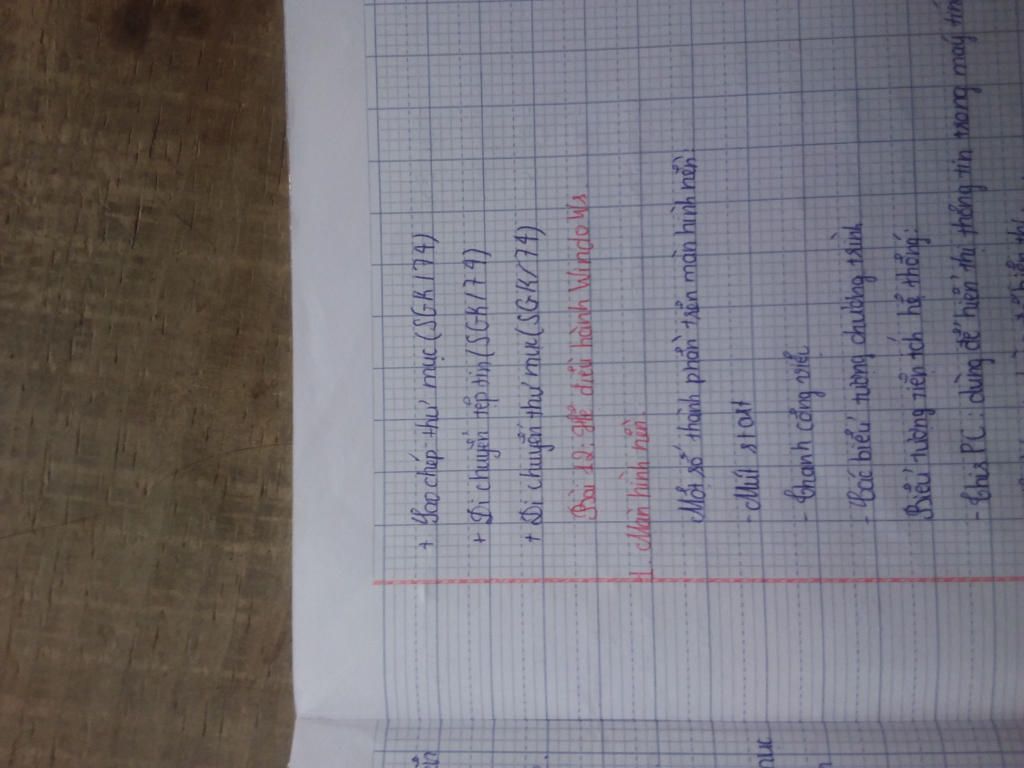 + Sao chép thư mục (SGK/74)
+ Di chuyển tệp tin (SGK/74)
+ Di chuyển thư mục (SGK/74)
Bài 12: Hệ điều hành Windows
1. Màn hình nền.
Một số thành phần trên màn hình nền:
- Nút start
- Thanh công việc
- Các biểu tượng chương trình
Biểu tượng tiện ích hệ thống:
- This PC: dùng để hiển thị thông tin trong máy tín